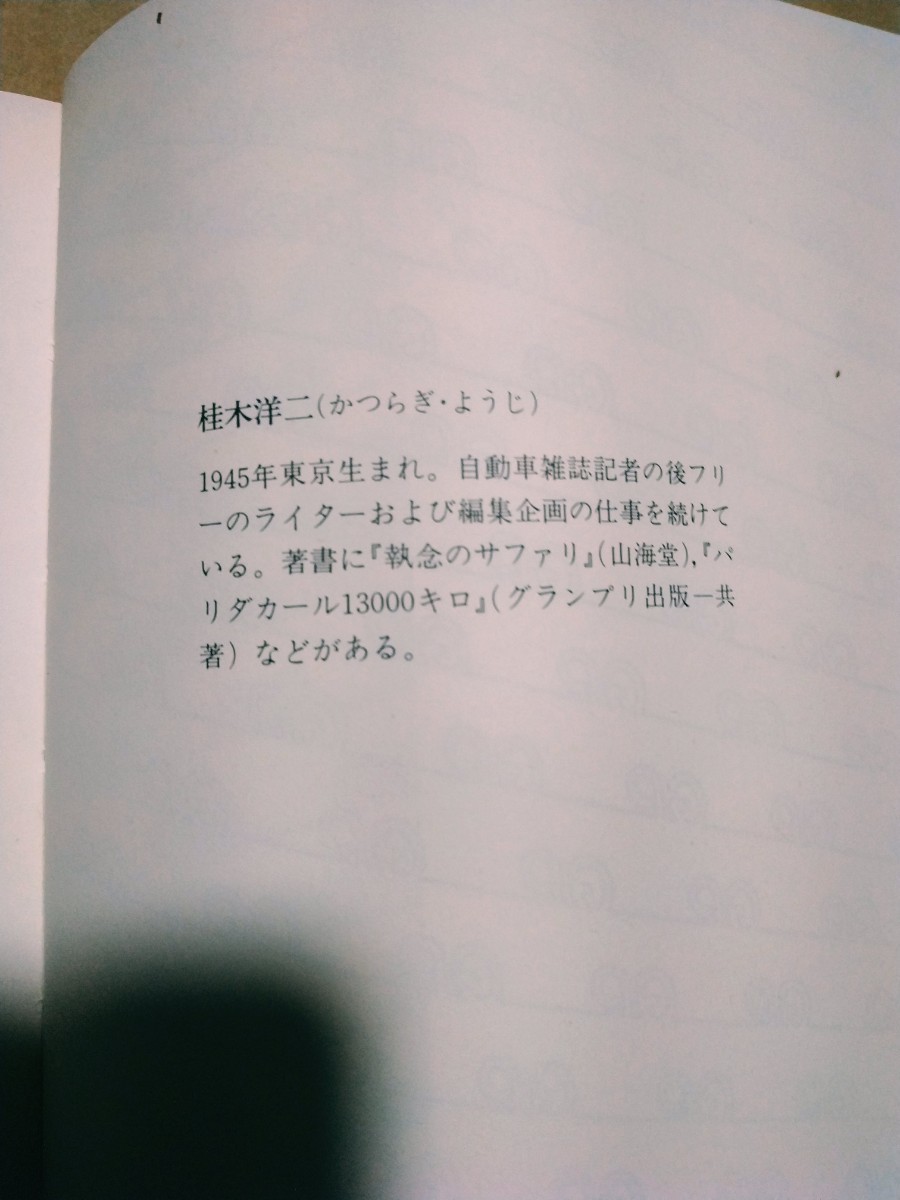 桂木洋二(かつらぎ・ようじ)
1945年東京生まれ。自動車雑誌記者の後フリ
ーのライターおよび編集企画の仕事を続けて
いる。著書に『執念のサファリ』(山海堂),『パ
リダカール13000キロ』(グランプリ出版―共
著) などがある。